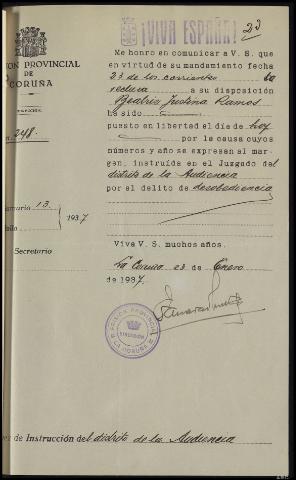 ¡VIVA ESPAÑA!
23
ION PROVINCIAL
DE
CORUÑA
248.
Me honro en comunicar a V. S. que
en virtud de su mandamiento fecha
23 de los corrientes la
reclusa a su disposición
Beatriz Justina Ramos
ha sido
puesto en libertad el día de hoy
por la causa cuyos
números y año se expresan al mar-
gen, instruída en el Juzgado del
distrito de la Audiencia
por el delito de desobediencia
umario 13.
1937
ollo
Secretario
Viva V. S. muchos años.
La Coruña 23 de Enero
de 1937.
PRISION PROVINCIAL
DIRECCION
LA CORUÑA
de Instrucción del distrito de la Audiencia